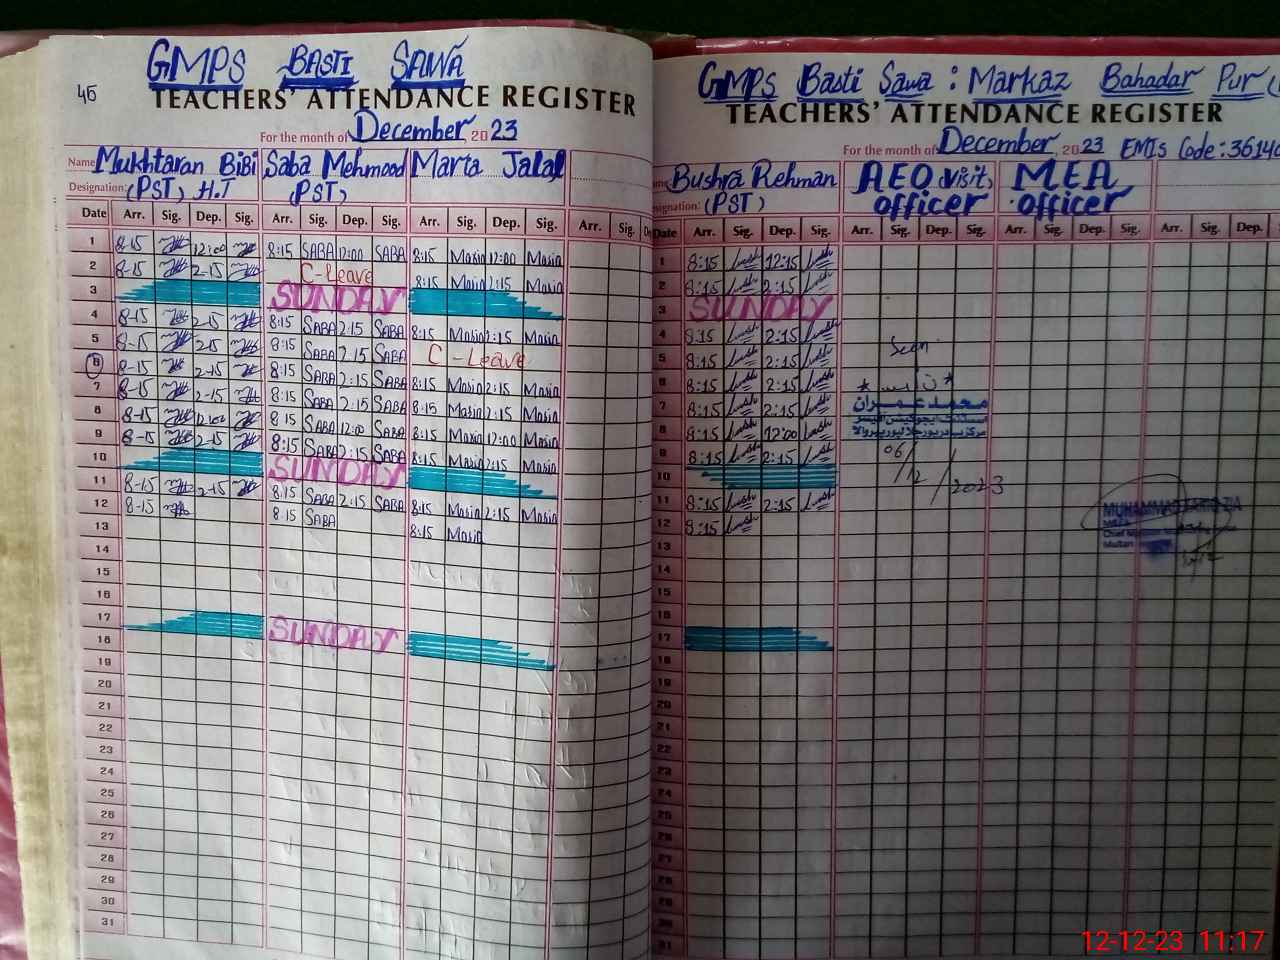 45
GMPS BASTI SAWA
TEACHERS' ATTENDANCE REGISTER
For the month of December, 2023
Name Mukhtaran BiBi Saba Mehmood Maria Jalal
Designation: (PST) H.T (PST)
Date Arr. Sig. Dep. Sig. Arr. Sig. Dep. Sig. Arr. Sig. Dep. Sig. Arr. Sig.
1 8-15 12:00 8:15 SABA 12:00 SABA 8:15 Maria 12:00 Maria
2 8-15 2-15 C-Leave 8:15 Maria 2:15 Maria
3 SUNDAY
4 8-15 2-15 8:15 SABA 2:15 SABA 8:15 Maria 2:15 Maria
5 8-15 2-15 8:15 SABA 2:15 SABA C-Leave
6 8-15 2-15 8:15 SABA 2:15 SABA 8:15 Maria 2:15 Maria
7 8-15 2-15 8:15 SABA 2:15 SABA 8:15 Maria 2:15 Maria
8 8-15 12:00 8:15 SABA 12:00 SABA 8:15 Maria 12:00 Maria
9 8-15 2-15 8:15 SABA 2:15 SABA 8:15 Maria 2:15 Maria
10 SUNDAY
11 8-15 2-15 8:15 SABA 2:15 SABA 8:15 Maria 2:15 Maria
12 8-15 8:15 SABA 8:15 Maria
13
14
15
16
17 SUNDAY
18
19
20
21
22
23
24
25
26
27
28
29
30
31
GMPS Basti Sawa : Markaz Bahadar Pur
TEACHERS' ATTENDANCE REGISTER
For the month of December, 2023 EMIS Code: 36140
Bushra Rehman AEO visit, MEA
Designation: (PST) officer officer
Date Arr. Sig. Dep. Sig. Arr. Sig. Dep. Sig. Arr. Sig. Dep. Sig. Arr. Sig. Dep.
1 8:15 12:15
2 8:15 2:15
3 SUNDAY
4 8:15 2:15
5 8:15 2:15 Seen
6 8:15 2:15
7 8:15 2:15 محمد عمران
8 8:15 12:00
9 8:15 2:15 06/12/2023
10
11 8:15 2:15 MUHAMMAD
12 8:15 Multan
13
14
15
16
17
18
19
20
21
22
23
24
25
26
27
28
29
30
31
12-12-23 11:17